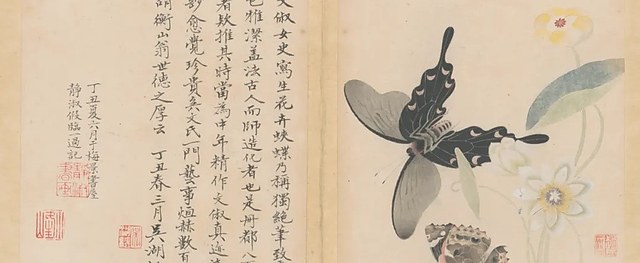 文俶女史寫生花卉蛺蝶乃稱獨絕筆致
色雅潔蓋法古人而師造化者也是冊都八
者欵推其時當為中年精作文俶真迹
愈覺珍貴矣文氏一門藝事烜赫數百
衡山翁世德之厚云 丁丑春三月吳湖
丁丑夏六月于梅景書屋
靜淑假臨一過記